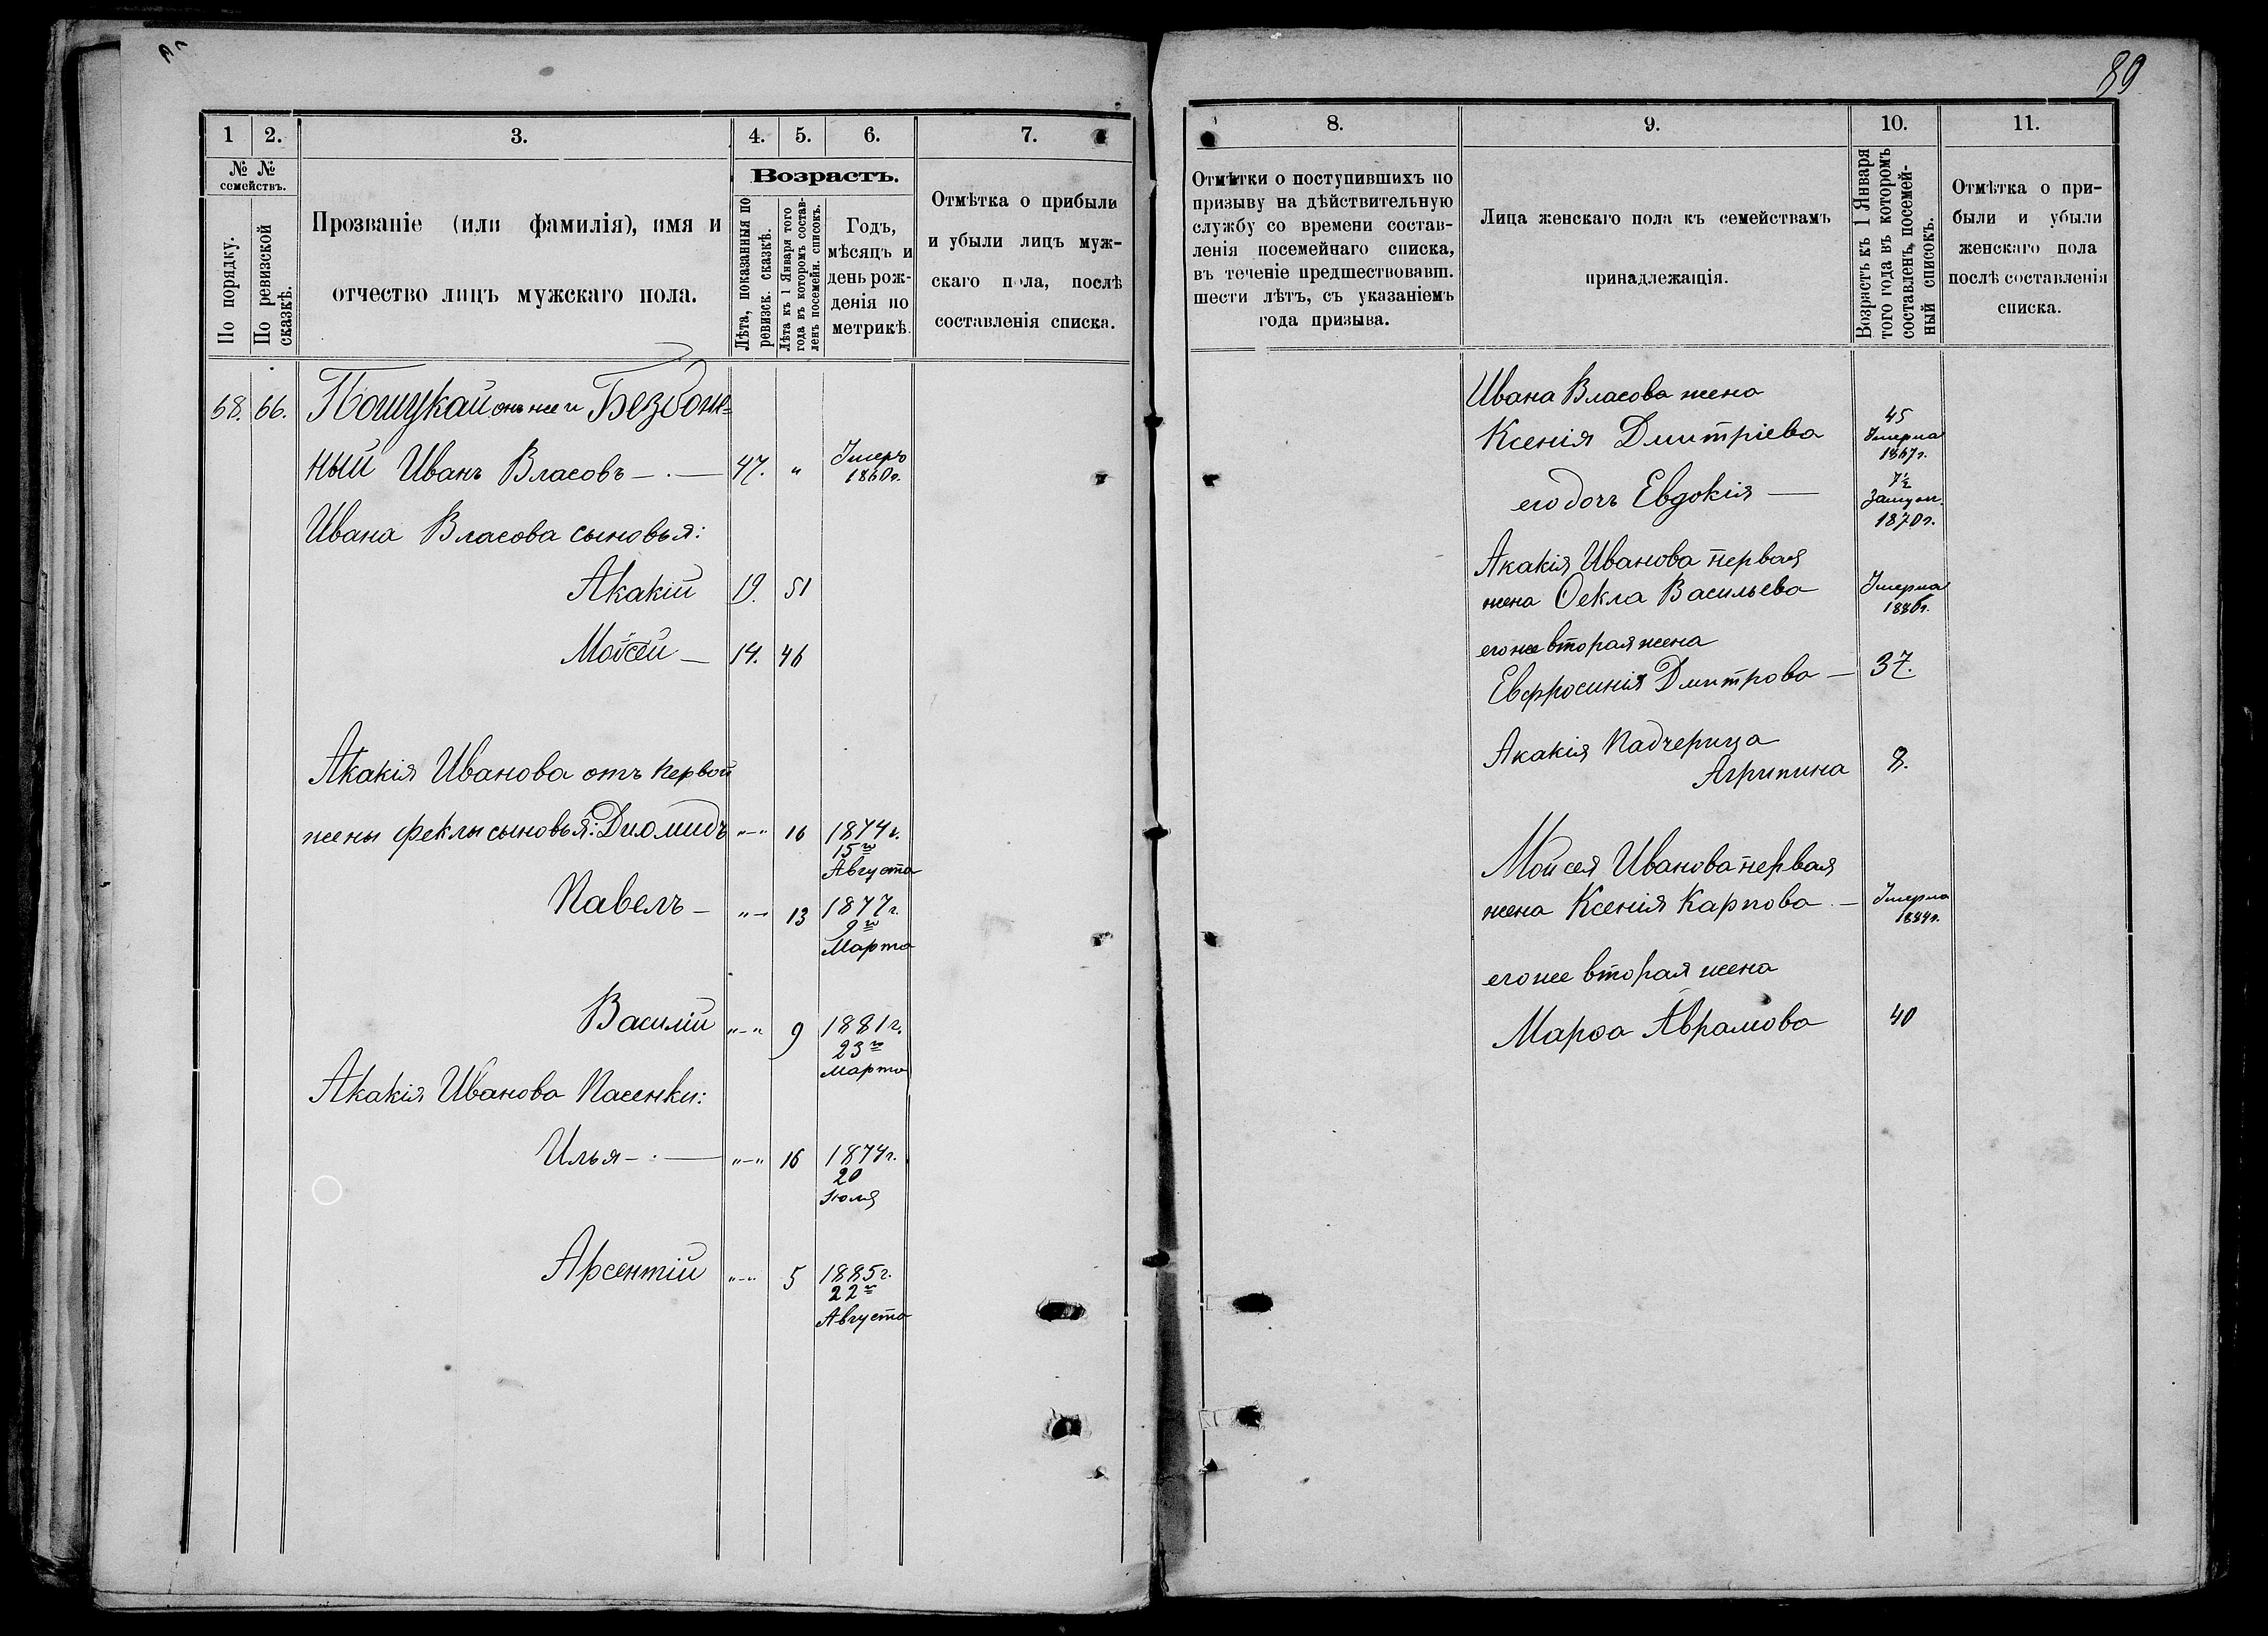 89
1
2.
3.
4.
5.
6.
7.
№ №
семействъ.
По порядку.
По ревизской
сказкѣ.
Прозваніе (или фамилія), имя и
отчество лицъ мужскаго пола.
Возрастъ.
Лѣта, показанныя по
ревизск. сказкѣ.
Лѣта къ 1 Января того
года въ которомъ состав-
ленъ посемейн. списокъ.
Годъ,
мѣсяцъ и
день рож-
денія по
метрикѣ.
Отмѣтка о прибыли
и убыли лицъ муж-
скаго пола, послѣ
составленія списка.
68. 66. Пошукай онъ же и Безбож-
ный Иванъ Власовъ — 47. „ Умеръ
1860 г.
Ивана Власова сыновья:
Акакій 19. 51
Мойсей — 14. 46
Акакія Иванова отъ первой
жены Феклы сыновья: Диомидъ „—„ 16 1874 г.
15го
Августа
Павелъ — „—„ 13 1877 г.
9го
Марта
Василій „—„ 9 1881 г.
23го
Марта
Акакія Иванова Пасенки:
Илья — „—„ 16 1874 г.
20
Июля
Арсентій „—„ 5 1885 г.
22го
Августа
8.
9.
10.
11.
Отмѣтки о поступившихъ по
призыву на дѣйствительную
службу со времени состав-
ленія посемейнаго списка,
въ теченіе предшествовавш.
шести лѣтъ, съ указаніемъ
года призыва.
Лица женскаго пола къ семействамъ
принадлежащія.
Возрастъ къ 1 Января
того года въ которомъ
составленъ, посемей-
ный списокъ.
Отмѣтка о при-
были и убыли
женскаго пола
послѣ составленія
списка.
Ивана Власова жена
Ксенія Дмитріева 45
Умерла
1867 г.
его дочь Евдокія —
Замуж.
1870 г.
Акакія Иванова первая
жена Ѳекла Васильева Умерла
1886 г.
его же вторая жена
Евфросинія Дмитрова — 37.
Акакія Падчерица
Агрипина 8.
Мойсея Иванова первая
жена Ксенія Карпова — Умерла
1884 г.
его же вторая жена
Марѳа Аврамова 40